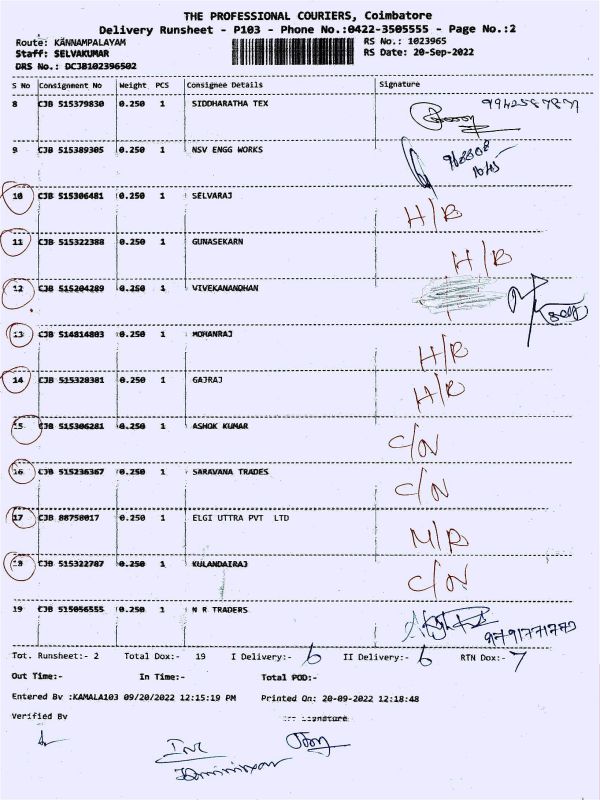 THE PROFESSIONAL COURIERS, Coimbatore
Delivery Runsheet - P103 - Phone No.:0422-3505555 - Page No.:2
Route: KANNAMPALAYAM RS No.: 1023965
Staff: SELVAKUMAR RS Date: 20-Sep-2022
DRS No.: DCJB102396502
S No Consignment No Weight PCS Consignee Details Signature
8 CJB 515379830 0.250 1 SIDDHARATHA TEX
9 CJB 515389305 0.250 1 NSV ENGG WORKS
10 CJB 515306481 0.250 1 SELVARAJ H/B
11 CJB 515322388 0.250 1 GUNASEKARN H/B
12 CJB 515204289 0.250 1 VIVEKANANDHAN
13 CJB 514814803 0.250 1 MOHANRAJ H/B
14 CJB 515328381 0.250 1 GAJRAJ H/B
15 CJB 515306281 0.250 1 ASHOK KUMAR C/N
16 CJB 515236367 0.250 1 SARAVANA TRADES C/N
17 CJB 88758017 0.250 1 ELGI UTTRA PVT LTD M/B
18 CJB 515322787 0.250 1 KULANDAIRAJ C/N
19 CJB 515056555 0.250 1 N R TRADERS
9791771770
Tot. Runsheet:- 2 Total Dox:- 19 I Delivery:- 6 II Delivery:- 6 RTN Dox:- 7
Out Time:- In Time:- Total POD:-
Entered By :KAMALA103 09/20/2022 12:15:19 PM Printed On: 20-09-2022 12:18:48
Verified By Signature